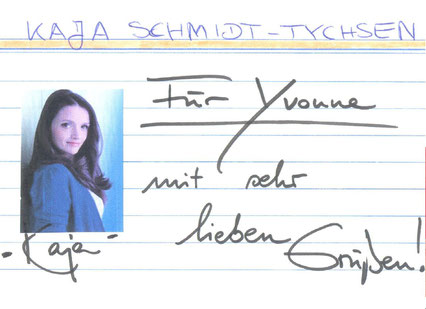 KAJA SCHMIDT-TYCHSEN
Für Yvonne
mit sehr
lieben
Grüßen!
-Kaja-